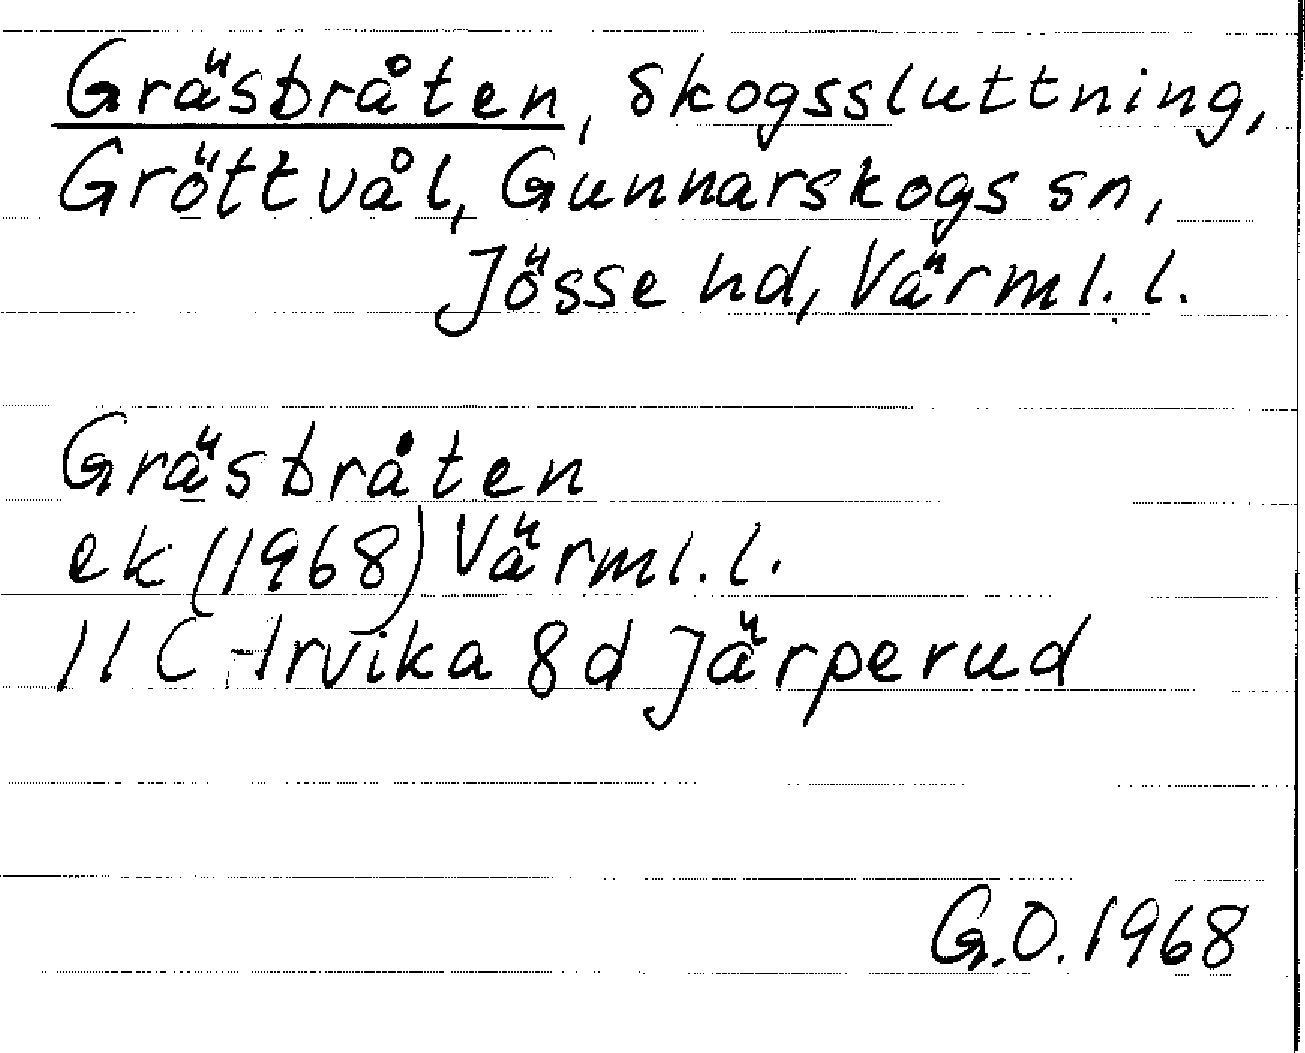 Gräsbråten, Skogssluttning,
Gröttvål, Gunnarskogs sn,
Jösse hd, Värml. l.
Gräsbråten
ek (1968) Värml. l.
11 C Arvika 8d Järperud
G.O. 1968